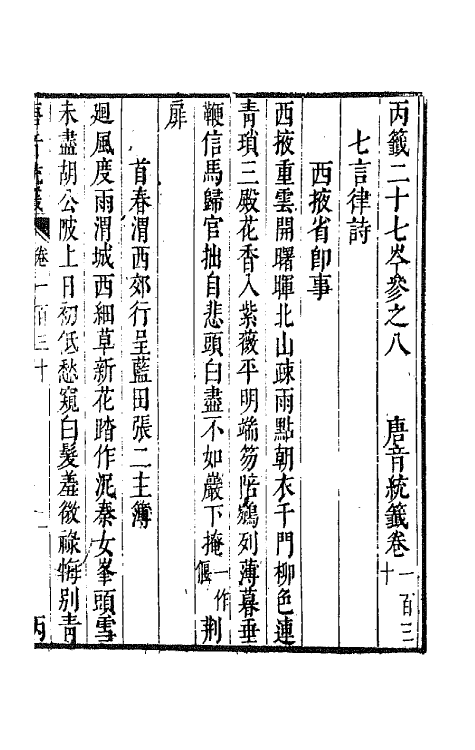 丙籖二十七岑參之八　唐音統籖卷一百三十
七言律詩
西掖省卽事
西掖重雲開曙暉北山疎雨點朝衣千門柳色連
青瑣三殿花香入紫薇平明端笏陪鵷列薄暮垂
鞭信馬歸官拙自悲頭白盡不如巖下掩一作偃荆
扉
首春渭西郊行呈藍田張二主簿
廻風度雨渭城西細草新花踏作泥秦女峯頭雪
未盡胡公陂上日初低愁窺白髮羞微祿悔別青
唐音統籖　卷一百三十　一　丙